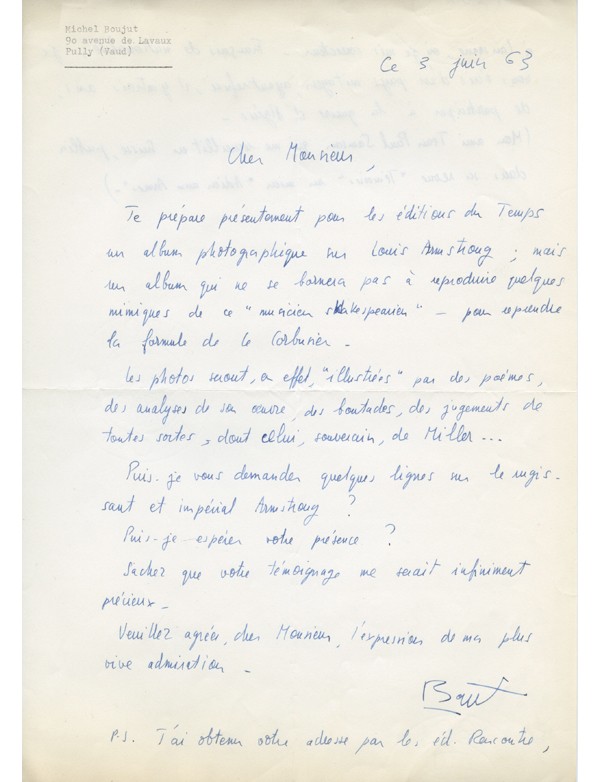 Michel Boujut
90 avenue de Lavaux
Pully (Vaud)
Ce 3 juin 63
Cher Monsieur,
Je prépare présentement pour les éditions du Temps
un album photographique sur Louis Armstrong ; mais
un album qui ne se bornera pas à reproduire quelques
mimiques de ce "musicien shakespearien" – pour reprendre
la formule de Le Corbusier.
Les photos seront, en effet, "illustrées" par des poèmes,
des analyses de son œuvre, des boutades, des jugements de
toutes sortes, dont celui, souverain, de Miller ...
Puis-je vous demander quelques lignes sur le rugis-
sant et impérial Armstrong ?
Puis-je espérer votre présence ?
Sachez que votre témoignage me serait infiniment
précieux.
Veuillez agréer, cher Monsieur, l'expression de ma plus
vive admiration.
P.S. J'ai obtenu votre adresse par les éd. Rencontre,